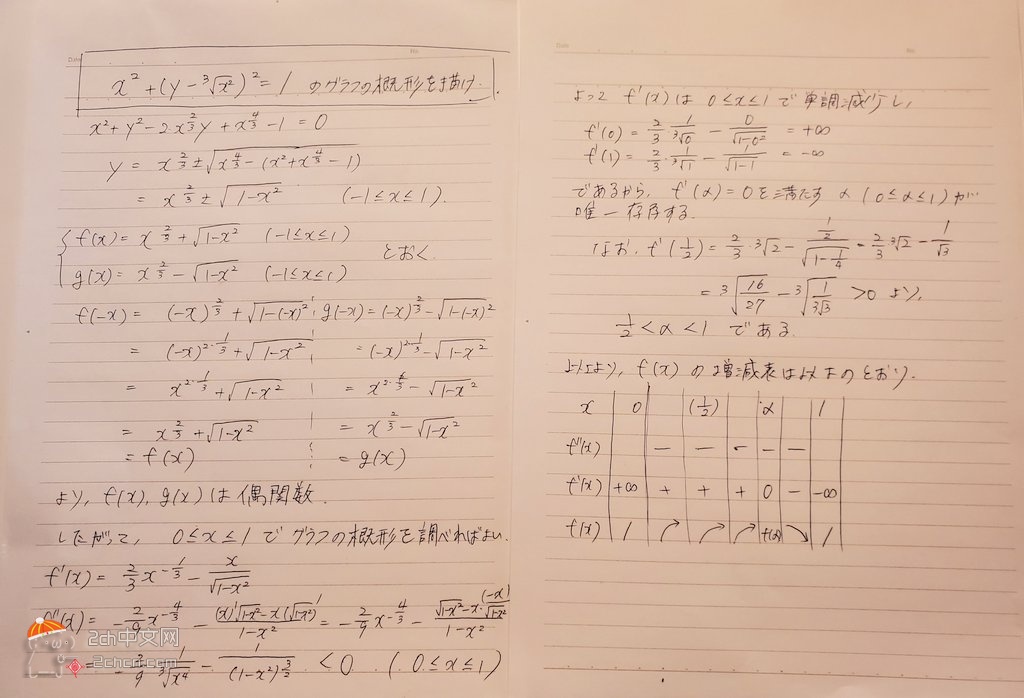 x² + (y - ³√x²)² = 1 のグラフの概形を描け.
x² + y² - 2·x^(2/3) y + x^(4/3) - 1 = 0
y = x^(2/3) ± √(x^(4/3) - (x² + x^(4/3) - 1))
= x^(2/3) ± √(1-x²) (-1≤x≤1).
{ f(x) = x^(2/3) + √(1-x²) (-1≤x≤1)
g(x) = x^(2/3) - √(1-x²) (-1≤x≤1) とおく.
f(-x) = (-x)^(2/3) + √(1-(-x)²) g(-x) = (-x)^(2/3) - √(1-(-x)²)
= (-x)^(2·1/3) + √(1-x²) = (-x)^(2·1/3) - √(1-x²)
= x^(2·1/3) + √(1-x²) = x^(2·1/3) - √(1-x²)
= x^(2/3) + √(1-x²) = x^(2/3) - √(1-x²)
= f(x) = g(x)
より, f(x), g(x) は偶関数.
したがって, 0≤x≤1 でグラフの概形を調べればよい.
f'(x) = 2/3 x^(-1/3) - x/√(1-x²)
f''(x) = -2/9 x^(-4/3) - ((x)'√(1-x²) - x(√(1-x²))')/(1-x²) = -2/9 x^(-4/3) - (√(1-x²) - x·(-x)/√(1-x²))/(1-x²)
= -2/9 1/³√x⁴ - 1/(1-x²)^(3/2) < 0 (0≤x≤1)
よって f'(x) は 0≤x≤1 で単調減少し,
f'(0) = 2/3 · 1/³√0 - 0/√(1-0²) = +∞
f'(1) = 2/3 · 1/³√1 - 1/√(1-1) = -∞
であるから, f'(α)=0 を満たす α (0≤α≤1) が
唯一存在する.
なお, f'(1/2) = 2/3 · ³√2 - (1/2)/√(1-1/4) = 2/3 ³√2 - 1/√3
= ³√(16/27) - ³√(1/(3√3)) > 0 より,
1/2 < α < 1 である.
以上より, f(x) の増減表は以下のとおり.
x 0 (1/2) α 1
f''(x) - - - - -
f'(x) +∞ + + + 0 - -∞
f(x) 1 ↗ ↗ ↗ f(α) ↘ 1
2ch中文网
2chcn.com